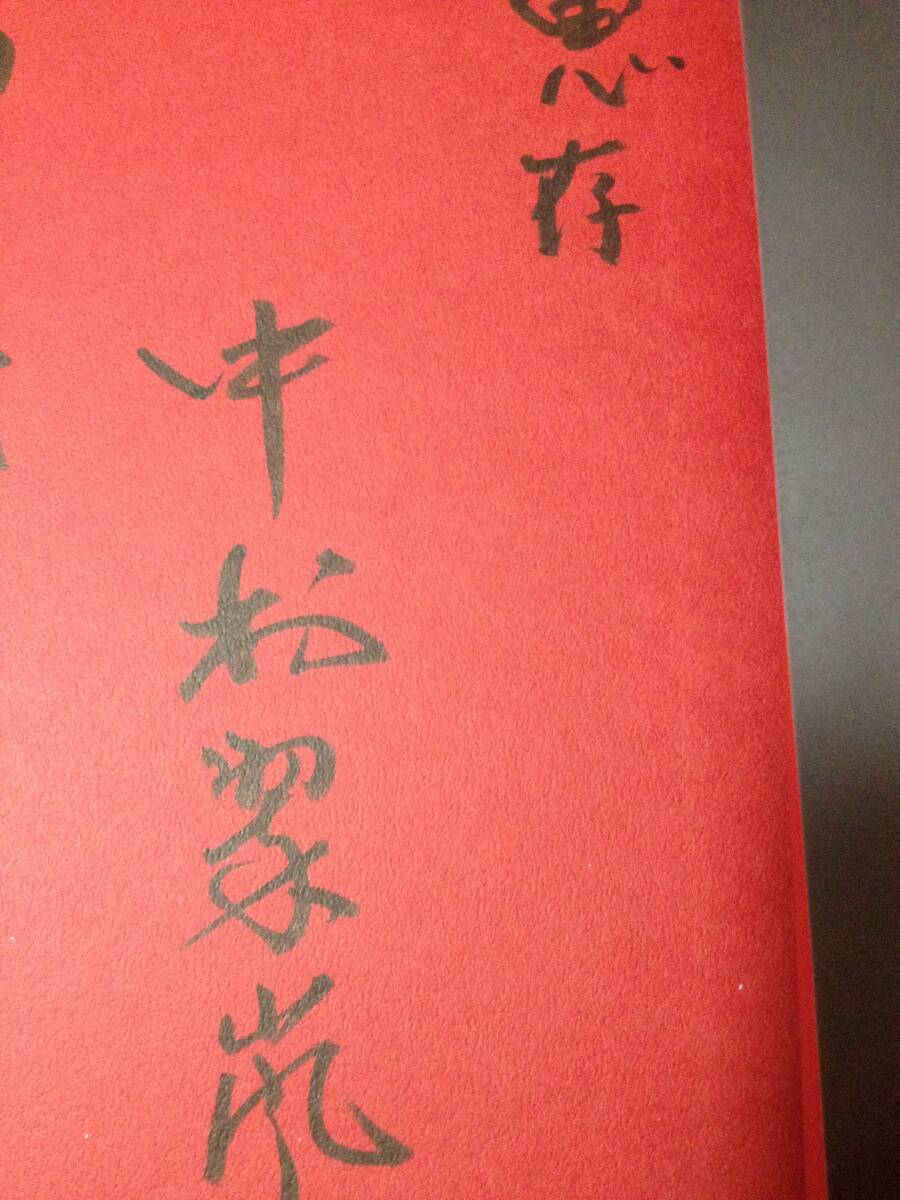 惠存
中村翠嵐